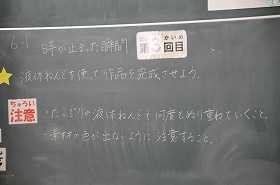 6-1 時が止まった瞬間
だい かいめ
第5回目
液体ねんどを使って作品を完成させよう。
ちゅうい
注意
・たっぷりの液体ねんどで何度もぬり重ねていくこと。
・素材の色が出ないように注意すること。